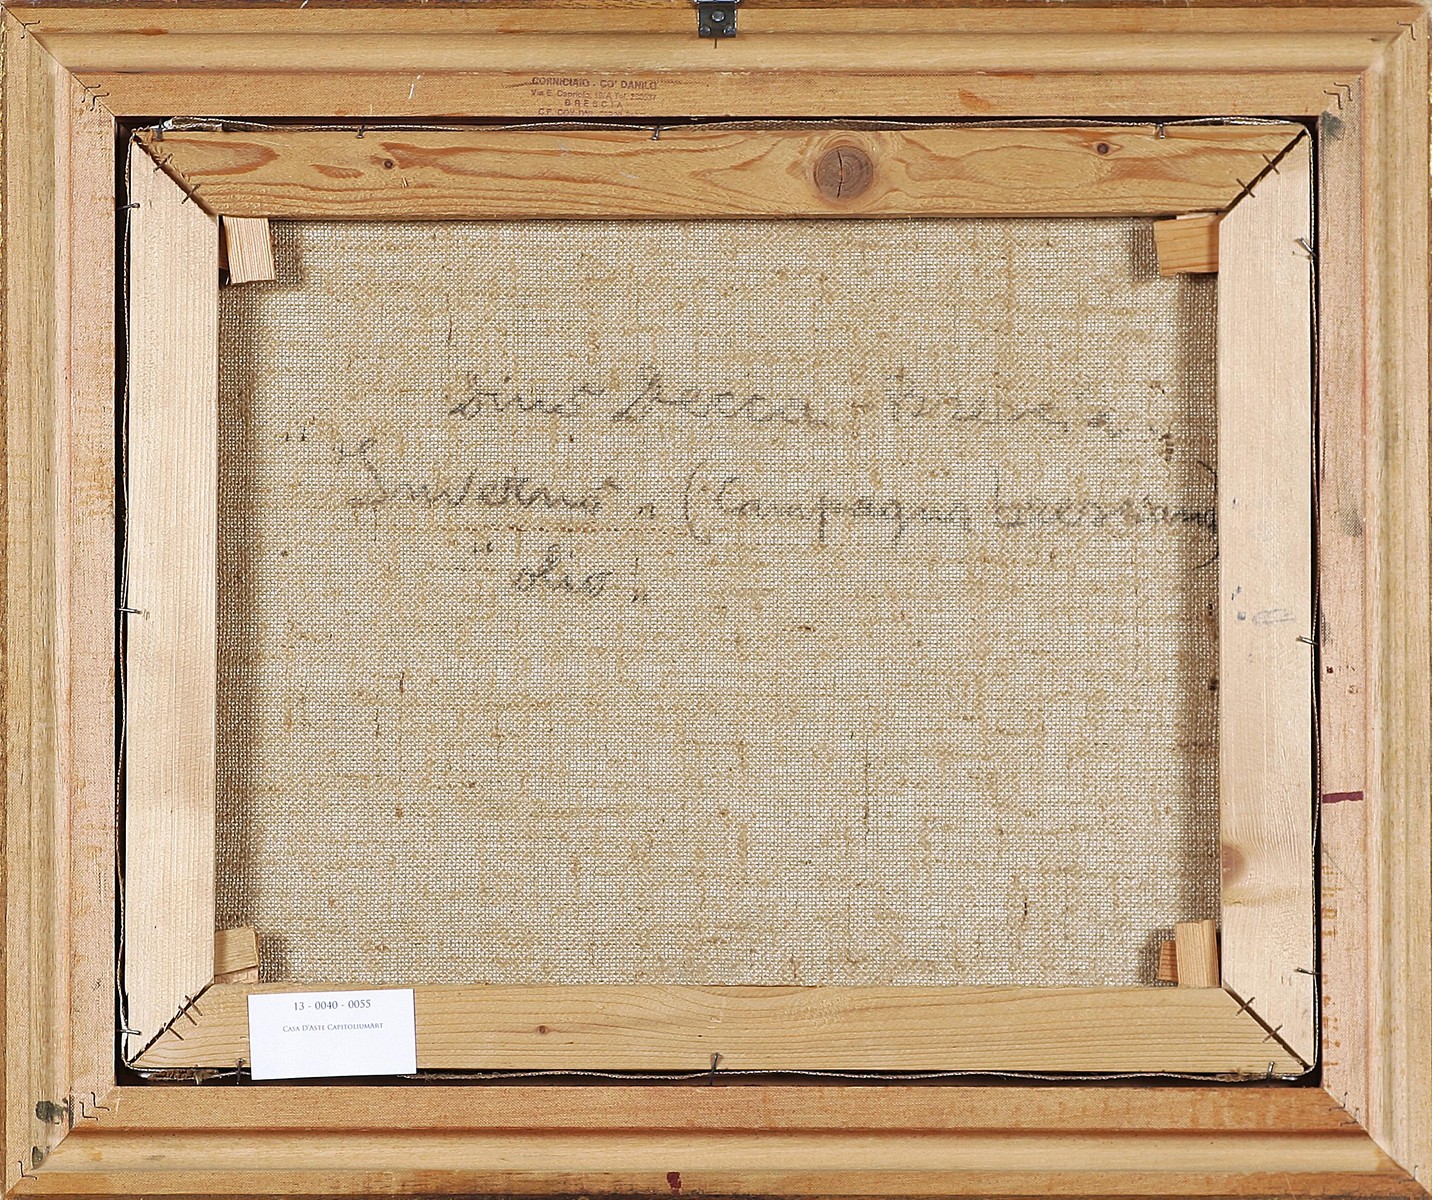 CORNICIAIO - CO' DANILO
Via E. Capriolo,
BRESCIA
Dino Decca - Brescia
"Inverno" (Campagna bresciana)
"olio"
13 - 0040 - 0055
Casa D'Aste CapitoliumArt